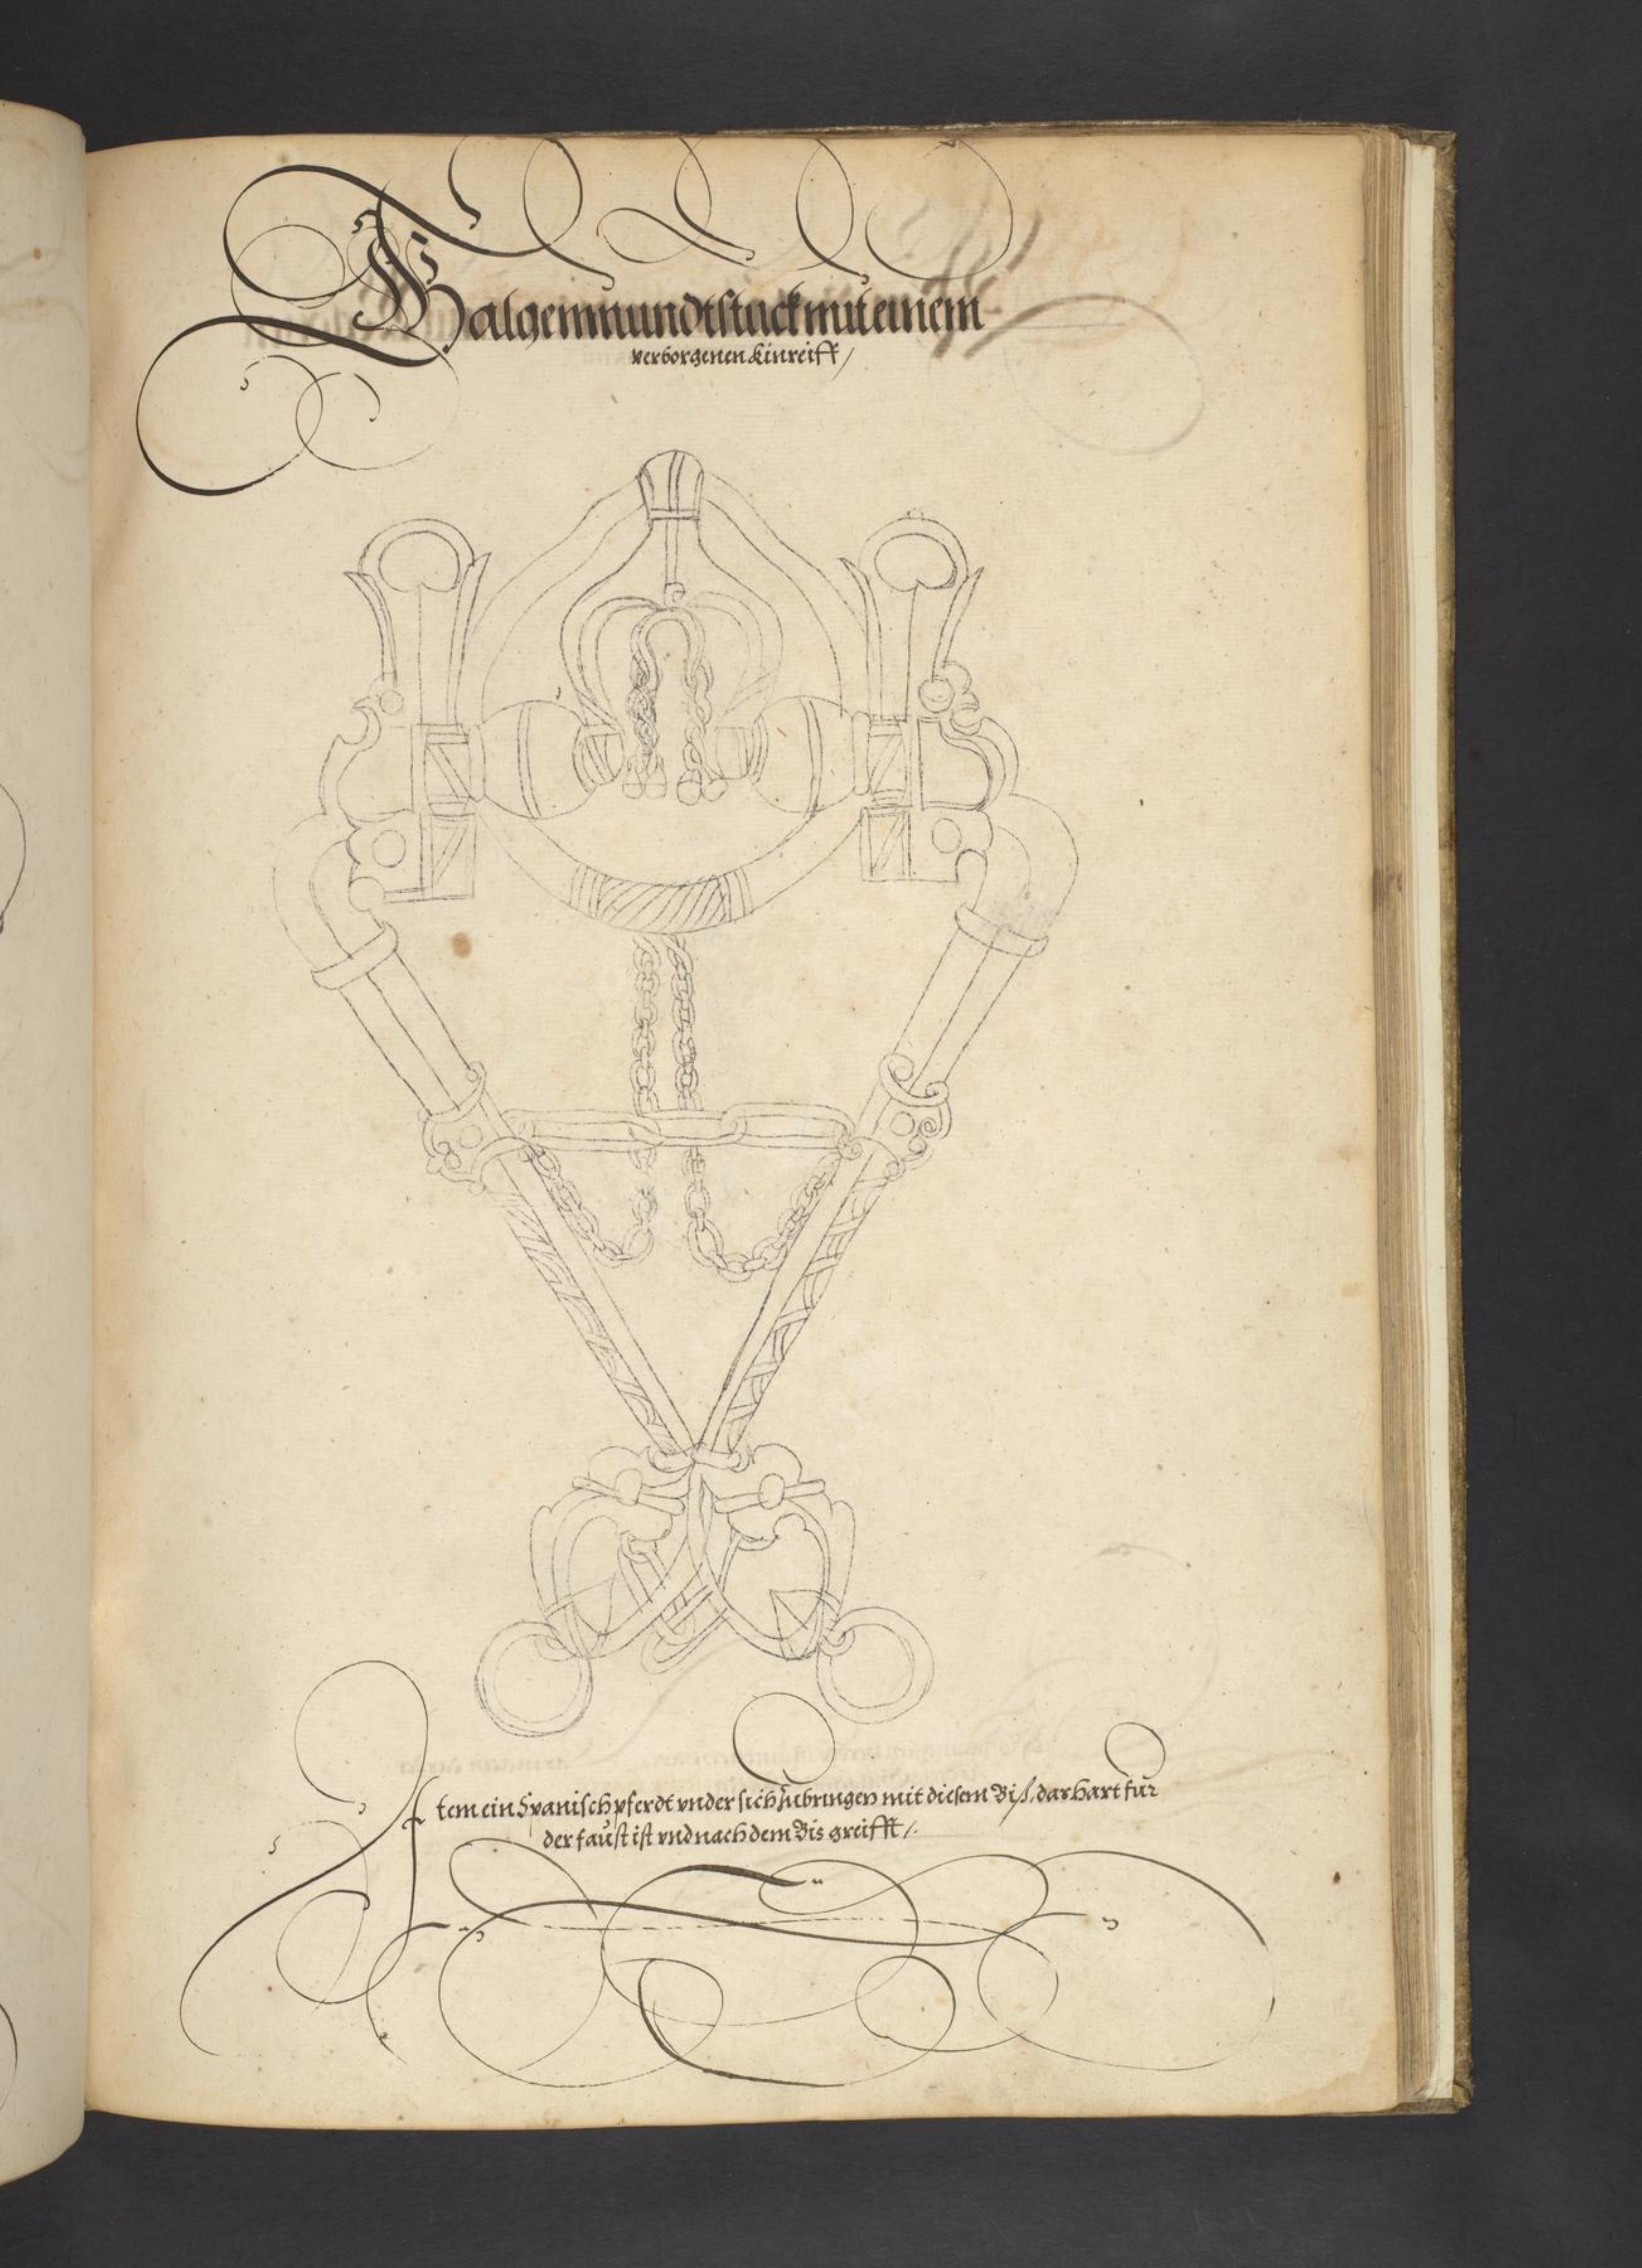 Galgenmundtstuck mit einem
verborgenen Kinreiff /
Item ein Spanisch pferdt vnder sich zubringen mit diesem Biß, dar hart für
der faust ist vnd nach dem Bis greifft /.